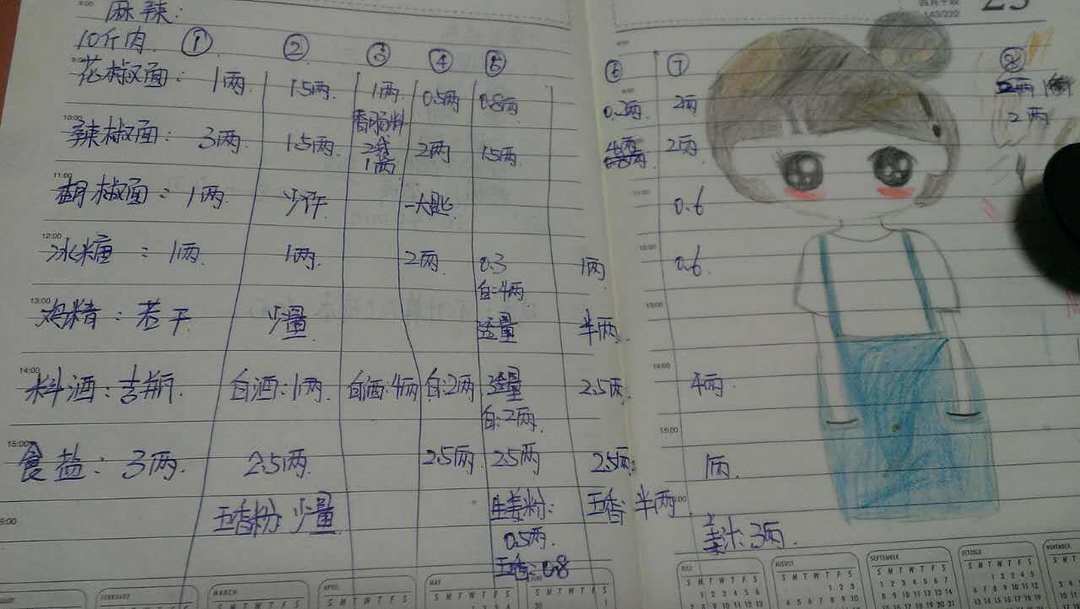 麻辣:
10斤肉. ① ② ③ ④ ⑤ ⑥ ⑦ ⑧
花椒面: 1两 1.5两. 1两 0.5两 0.8两 0.2两 2两
香肠料 2两
辣椒面: 3两 1.5两. 2袋 2两 1.5两. 2两
1两
胡椒面: 1两. 少许 一大匙. 0.6
冰糖: 1两. 1两. 2两. 0.3 1两 0.6
白:4两
鸡精: 若干 少量 适量 半两.
料酒: 白酒:1两. 白酒:4两 白:2两 适量 2.5两. 4两.
白:2两.
食盐: 3两. 2.5两. 2.5两 2.5两 2.5两. 1两.
五香粉 少量 生姜粉: 五香: 半两
0.5两. 姜汁:3两.
五香:0.8
09:00
10:00
11:00
12:00
13:00
14:00
15:00
143/222
FEBRUARY MARCH APRIL MAY JULY AUGUST SEPTEMBER OCTOBER NOVEMBER
S M T W T F S